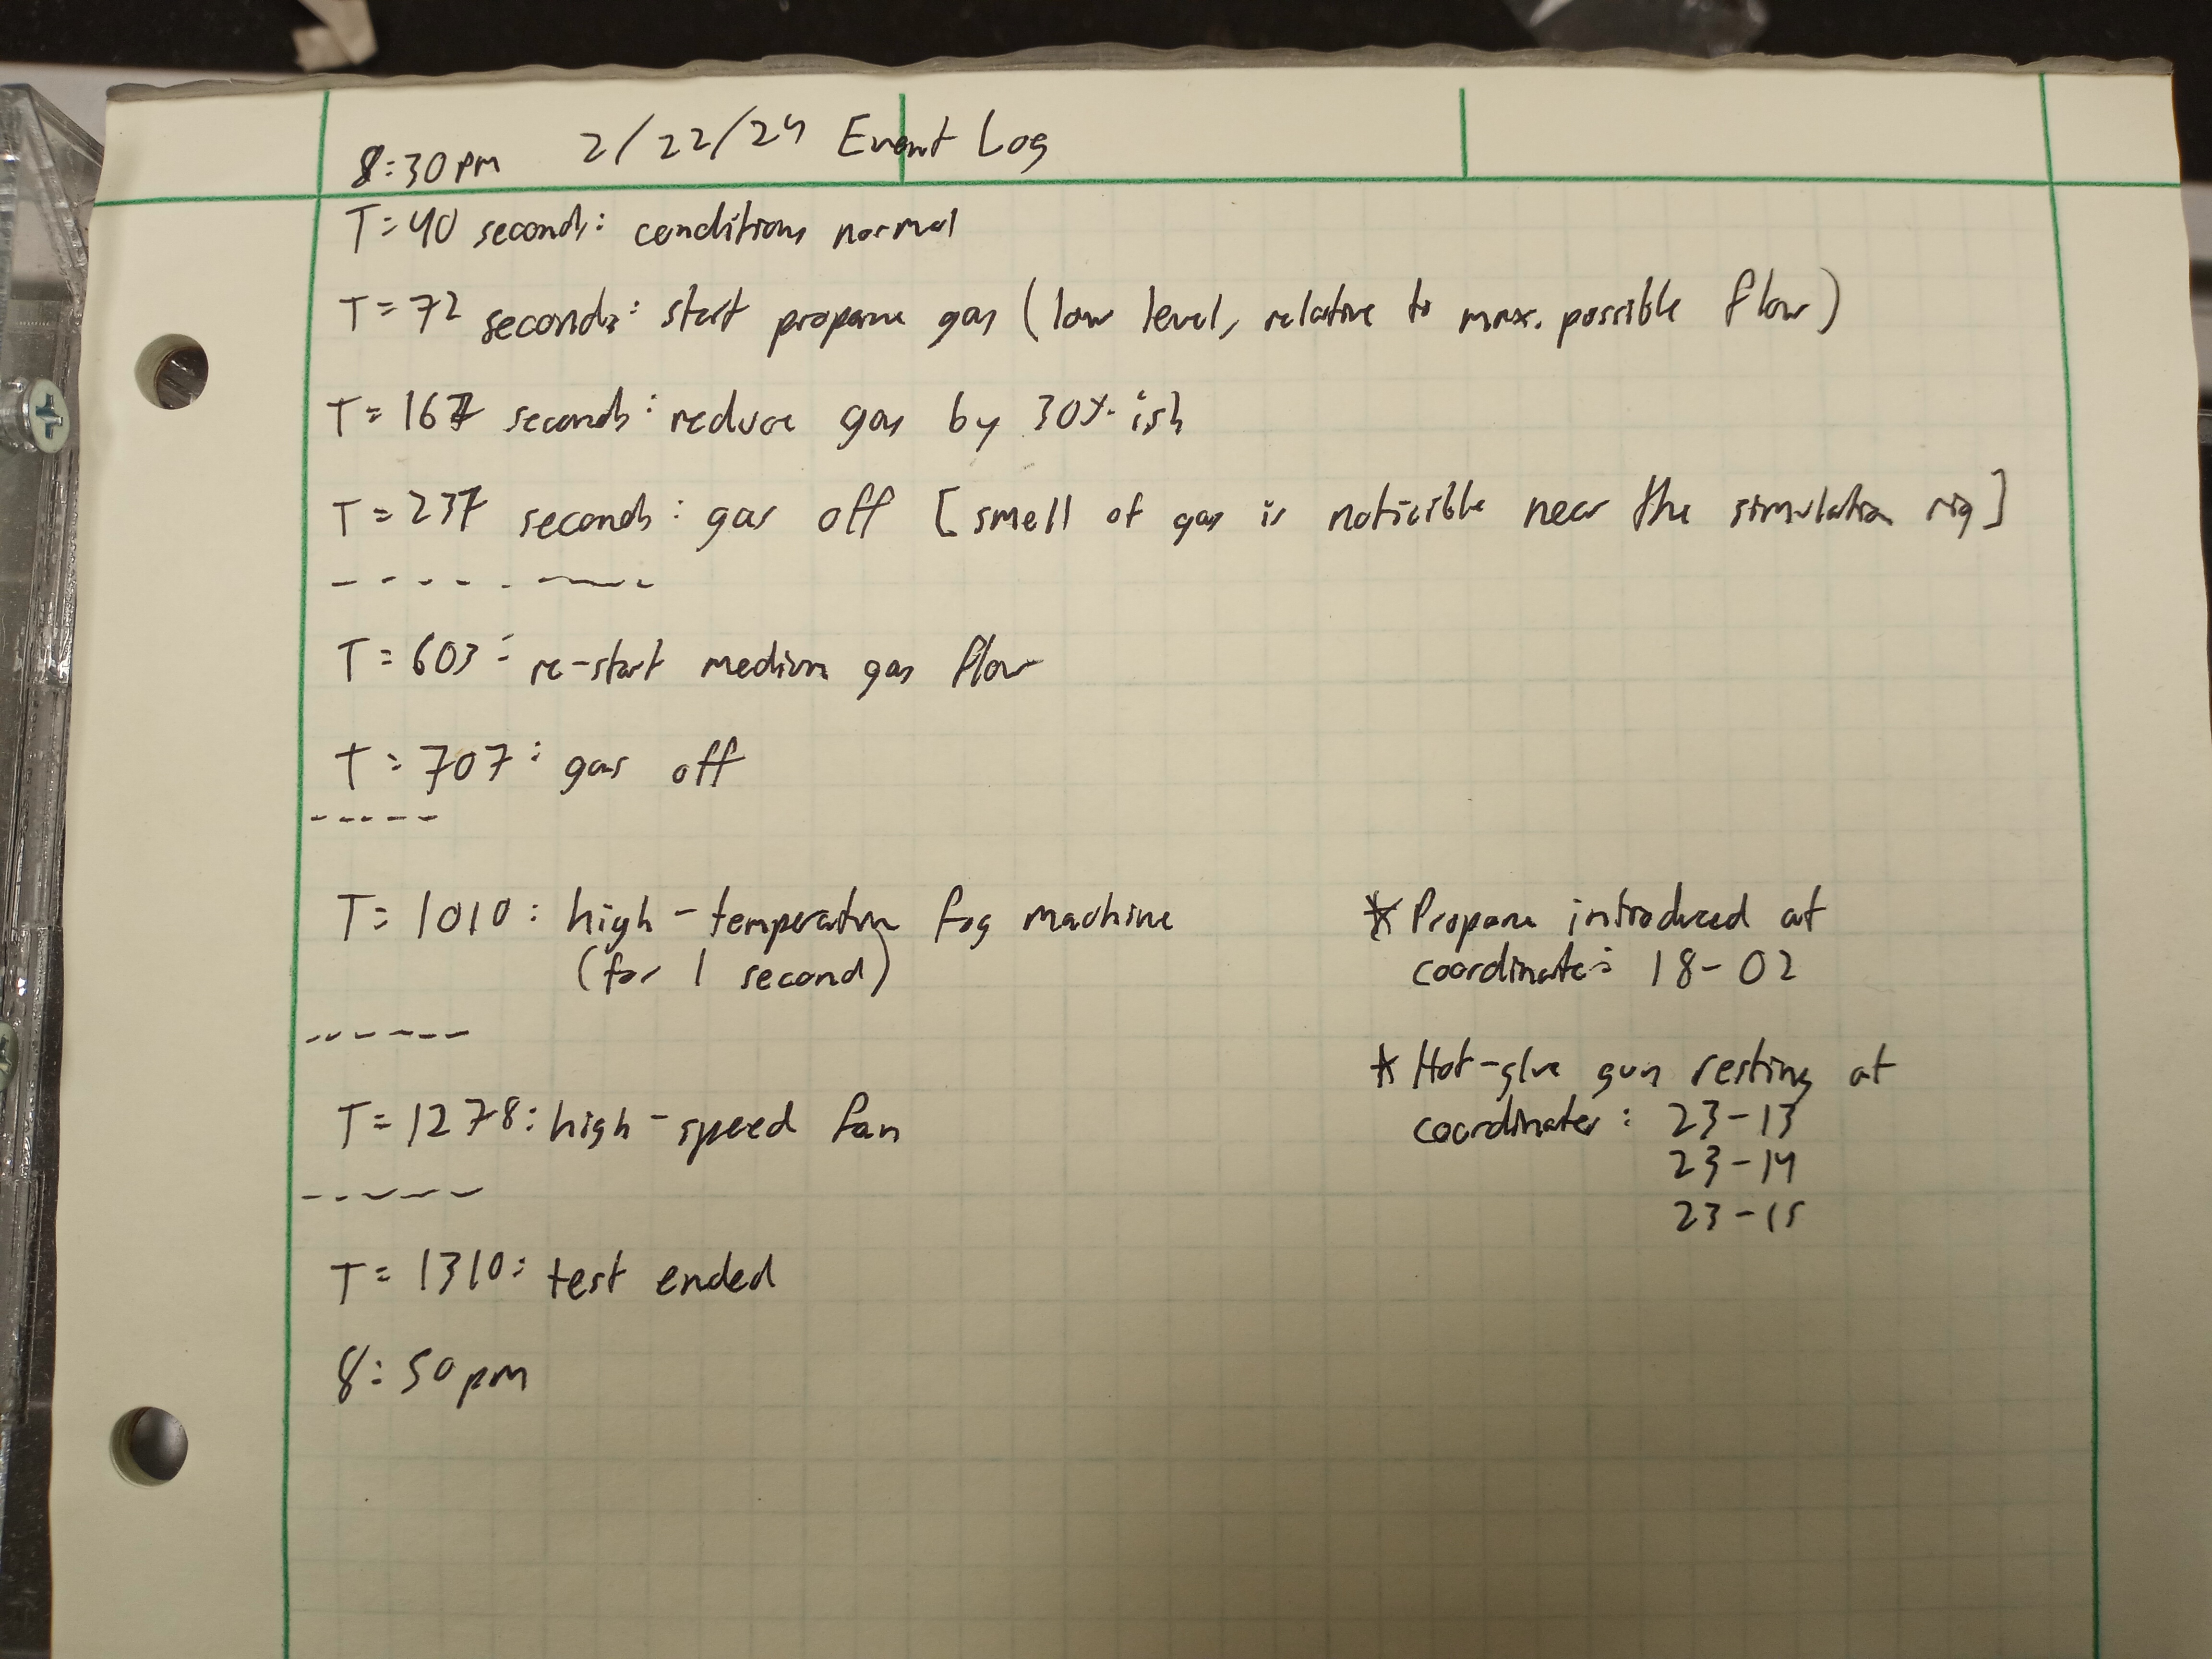 8:30pm 2/22/24 Event Log
T=40 seconds: conditions normal
T=72 seconds: start propane gas (low level, relative to max. possible flow)
T=167 seconds: reduce gas by 30%-ish
T=237 seconds: gas off [smell of gas is noticible near the simulation rig]
T=603: re-start medium gas flow
T=707: gas off
T=1010: high-temperature fog machine
(for 1 second)
* Propane introduced at
coordinate: 18-02
* Hot-glue gun resting at
coordinates: 23-13
23-14
23-15
T=1278: high-speed fan
T=1310: test ended
8:50pm